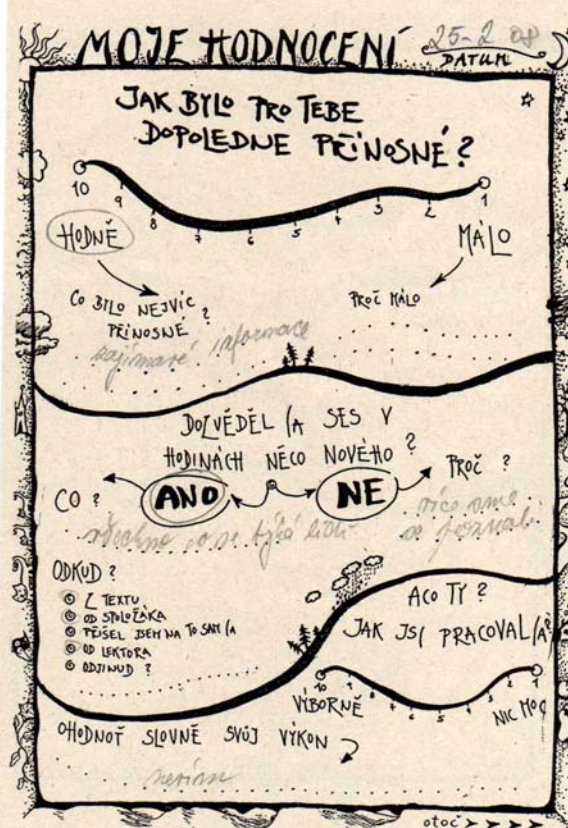 MOJE HODNOCENÍ
25-2 08
DATUM
JAK BYLO PRO TEBE
DOPOLEDNE PŘÍNOSNÉ?
10 9 8 7 6 5 4 3 2 1
HODNĚ
MÁLO
CO BYLO NEJVÍC
PŘÍNOSNÉ?
PROČ MÁLO
zajímavé informace
DOZVĚDĚL/A SES V
HODINÁCH NĚCO NOVÉHO?
CO?
ANO
NE
PROČ?
všechno co se týká lidí
více sme
se poznali
ODKUD?
Z TEXTU
OD SPOLUŽÁKA
PŘIŠEL JSEM NA TO SÁM/A
OD LEKTORA
ODJINUD?
A CO TY?
JAK JSI PRACOVAL/A?
VÝBORNĚ
NIC MOC
OHODNOŤ SLOVNĚ SVŮJ VÝKON
otoč